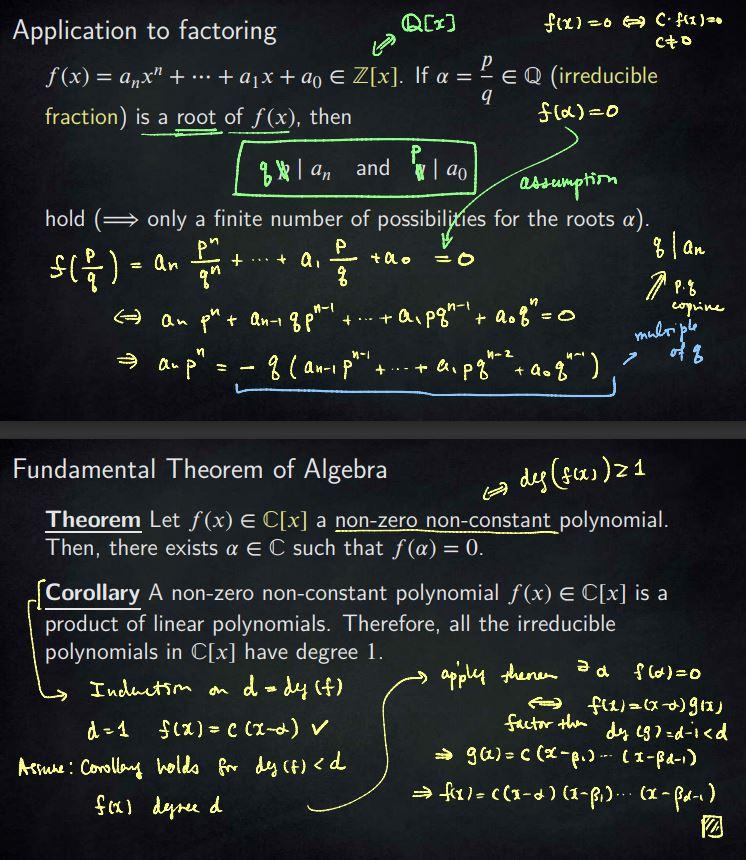 Application to factoring
ℚ[x]
f(x)=0 ⇔ C·f(x)=0
C≠0
f(x) = aₙxⁿ + ⋯ + a₁x + a₀ ∈ ℤ[x]. If α = p/q ∈ ℚ (irreducible
fraction) is a root of f(x), then
f(α)=0
q | aₙ and p | a₀
assumption
hold (⟹ only a finite number of possibilities for the roots α).
f(p/q) = aₙ pⁿ/qⁿ + ⋯ + a₁ p/q + a₀ = 0
q | aₙ
⇔ aₙ pⁿ + aₙ₋₁ q pⁿ⁻¹ + ⋯ + a₁ p qⁿ⁻¹ + a₀ qⁿ = 0
⇑ p.q
coprime
⇒ aₙ pⁿ = − q ( aₙ₋₁ pⁿ⁻¹ + ⋯ + a₁ p qⁿ⁻² + a₀ qⁿ⁻¹ )
multiple
of q
Fundamental Theorem of Algebra
⇔ deg(f(x)) ≥ 1
Theorem Let f(x) ∈ ℂ[x] a non-zero non-constant polynomial.
Then, there exists α ∈ ℂ such that f(α) = 0.
Corollary A non-zero non-constant polynomial f(x) ∈ ℂ[x] is a
product of linear polynomials. Therefore, all the irreducible
polynomials in ℂ[x] have degree 1.
Induction on d = deg(f)
d=1 f(x) = c(x-α) ✓
Assume: Corollary holds for deg(f) < d
f(x) degree d
apply theorem ∃ α f(α)=0
⇔ f(x)=(x-α)g(x)
factor thm deg(g)=d-1<d
⇒ g(x) = c(x-β₁)⋯(x-β_{d-1})
⇒ f(x) = c(x-α)(x-β₁)⋯(x-β_{d-1})